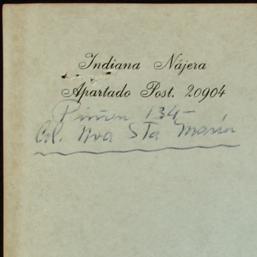 Indiana Nájera
Apartado Post. 20904
Piñon 134-
Col. Nva Sta María